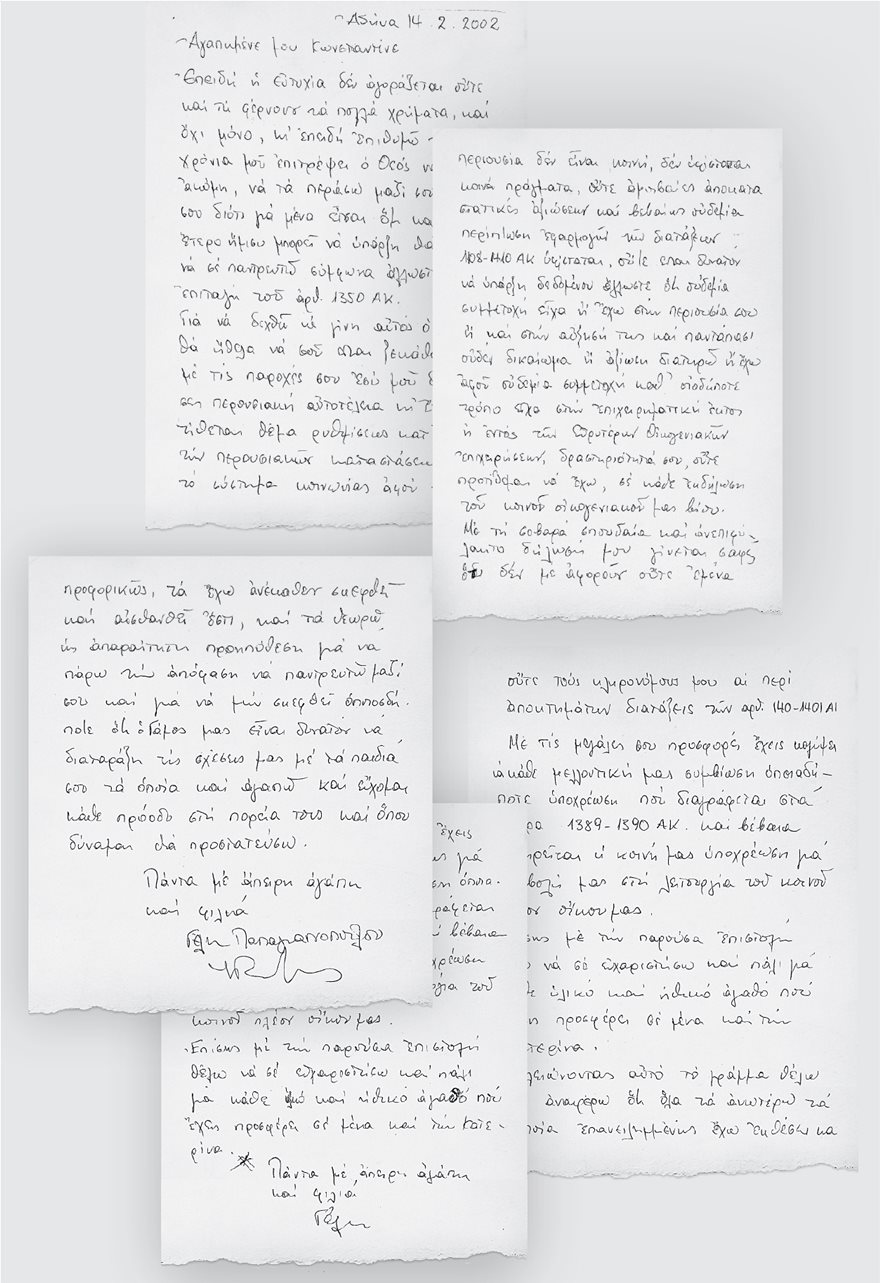 Αθήνα 14.2.2002
Αγαπημένε μου Κωνσταντίνε
Επειδή ἡ εὐτυχία δέν ἀγοράζεται οὔτε
καί τή φέρνουν τά πολλά χρήματα, καί
ὄχι μόνο, κι' ἐπειδή ἐπιθυμῶ
χρόνια μοῦ ἐπιτρέψει ὁ Θεός ν
ἀκόμη, νά τά περάσω μαζί σου
σου διότι γιά μένα εἶσαι
ἕτερο ἥμισυ μπορεῖ νά ὑπάρξη θά
νά σέ παντρευτῶ σύμφωνα ἄλλωστ
ἐπιταγή τοῦ ἀρθ. 1350 ΑΚ.
Γιά νά δεχθῶ νά γίνη αὐτό ὁ
θά ἤθελα νά σοῦ εἶπα ξεκάθ
μέ τίς παροχές σου ἐσύ μοῦ
ση περιουσιακή αὐτοτέλεια κι'
τίθεται θέμα ρυθμίσεως κατ
τῶν περιουσιακῶν καταστάσεω
τό σύστημα κοινωνίας ἀφοῦ
περιουσία δέν εἶναι κοινή, δέν ὑφίστανται
κοινά πράγματα, οὔτε ἀμοιβαίες ἀποκατα
στατικές ἀξιώσεων καί βεβαίως οὐδεμία
περίπτωση ἐφαρμογῆς τῶν διατάξεων
1108-1410 ΑΚ ὑφίσταται, οὔτε εἶναι δυνατόν
νά ὑπάρξη δεδομένου ἄλλωστε ὅτι οὐδεμία
συμμετοχή εἶχα ἤ ἔχω στήν περιουσία σου
ἤ καί στήν αὔξησή της καί παντάπασι
οὐδέν δικαίωμα ἤ ἀξίωση διατηρῶ ἤ ἔχω
ἀφοῦ οὐδεμία συμμετοχή καθ' οἱοδήποτε
τρόπο εἶχα στήν ἐπιχειρηματική ἐκτός
ἤ ἐντός τῶν εὐρυτέρων οἰκογενειακῶν
ἐπιχειρήσεων, δραστηριότητά σου, οὔτε
προτίθεμαι νά ἔχω, σέ κάθε ἐκδήλωση
τοῦ κοινοῦ οἰκογενειακοῦ μας βίου.
Μέ τή σοβαρά σπουδαία καί ἀνεπιφύ-
λακτο δήλωσή μου γίνεται σαφές
ὅτι δέν μέ ἀφοροῦν οὔτε ἐμένα
προφορικῶς, τά ἔχω ἀνέκαθεν σκεφθεῖ
καί αἰσθανθεῖ ἔτσι, καί τά θεωρῶ
ὡς ἀπαραίτητη προϋπόθεση γιά νά
πάρω τήν ἀπόφαση νά παντρευτῶ μαζί
σου καί γιά νά μήν σκεφθεῖ ὁποιοσδή-
ποτε ὅτι ὁ Γάμος μας εἶναι δυνατόν νά
διαταράξη τίς σχέσεις μας μέ τά παιδιά
σου τά ὁποῖα καί ἀγαπῶ καί εὔχομαι
κάθε πρόοδο στή πορεία τους καί ὅπου
δύναμαι θά προστατεύσω.
Πάντα μέ ἄπειρη ἀγάπη
καί φιλιά
Γέλη Παπαγιαννοπούλου
οὔτε τούς κληρονόμους μου αἱ περί
ἀποκτημάτων διατάξεις τῶν ἀρθ. 140-1401 Α
Μέ τίς μεγάλες σου προσφορές ἔχεις καλύψει
κάθε μελλοντική μας συμβίωση ὁποιαδή-
ποτε ὑποχρέωση πού διαγράφεται στά
ρα 1389-1390 ΑΚ. καί βέβαια
ρεῖται ἡ κοινή μας ὑποχρέωση γιά
βολή μας στή λειτουργία τοῦ κοινοῦ
ον οἴκου μας.
σης μέ τήν παροῦσα ἐπιστολή
νά σέ εὐχαριστήσω καί πάλι γιά
ε ὑλικό καί ἠθικό ἀγαθό πού
προσφέρει σέ μένα καί τήν
τερίνα.
λειώνοντας αὐτό τό γράμμα θέλω
ἀναφέρω ὅτι ὅλα τά ἀνωτέρω τά
ποία ἐπανειλημμένως ἔχω ἐκθέσει κα
ἔχεις
ς γιά
ση ὁποια-
ράφεται
ί βέβαια
χρέωση
γία τοῦ
κοινοῦ πλέον οἴκου μας.
Ἐπίσης μέ τήν παροῦσα ἐπιστολή
θέλω νά σέ εὐχαριστήσω καί πάλι
για κάθε καί ἠθικό ἀγαθό πού
ἔχεις προσφέρει σέ μένα καί τήν Κατε-
ρίνα.
Πάντα μέ ἄπειρη ἀγάπη
καί φιλιά
Γέλη